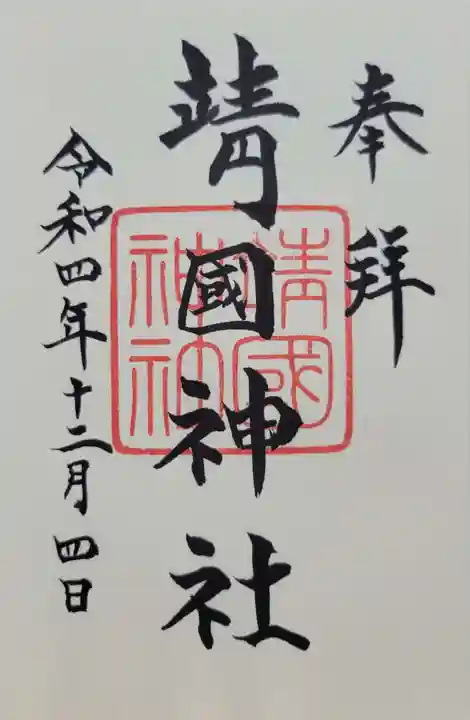 奉拜
靖國神社
靖國
神社
令和四年十二月四日